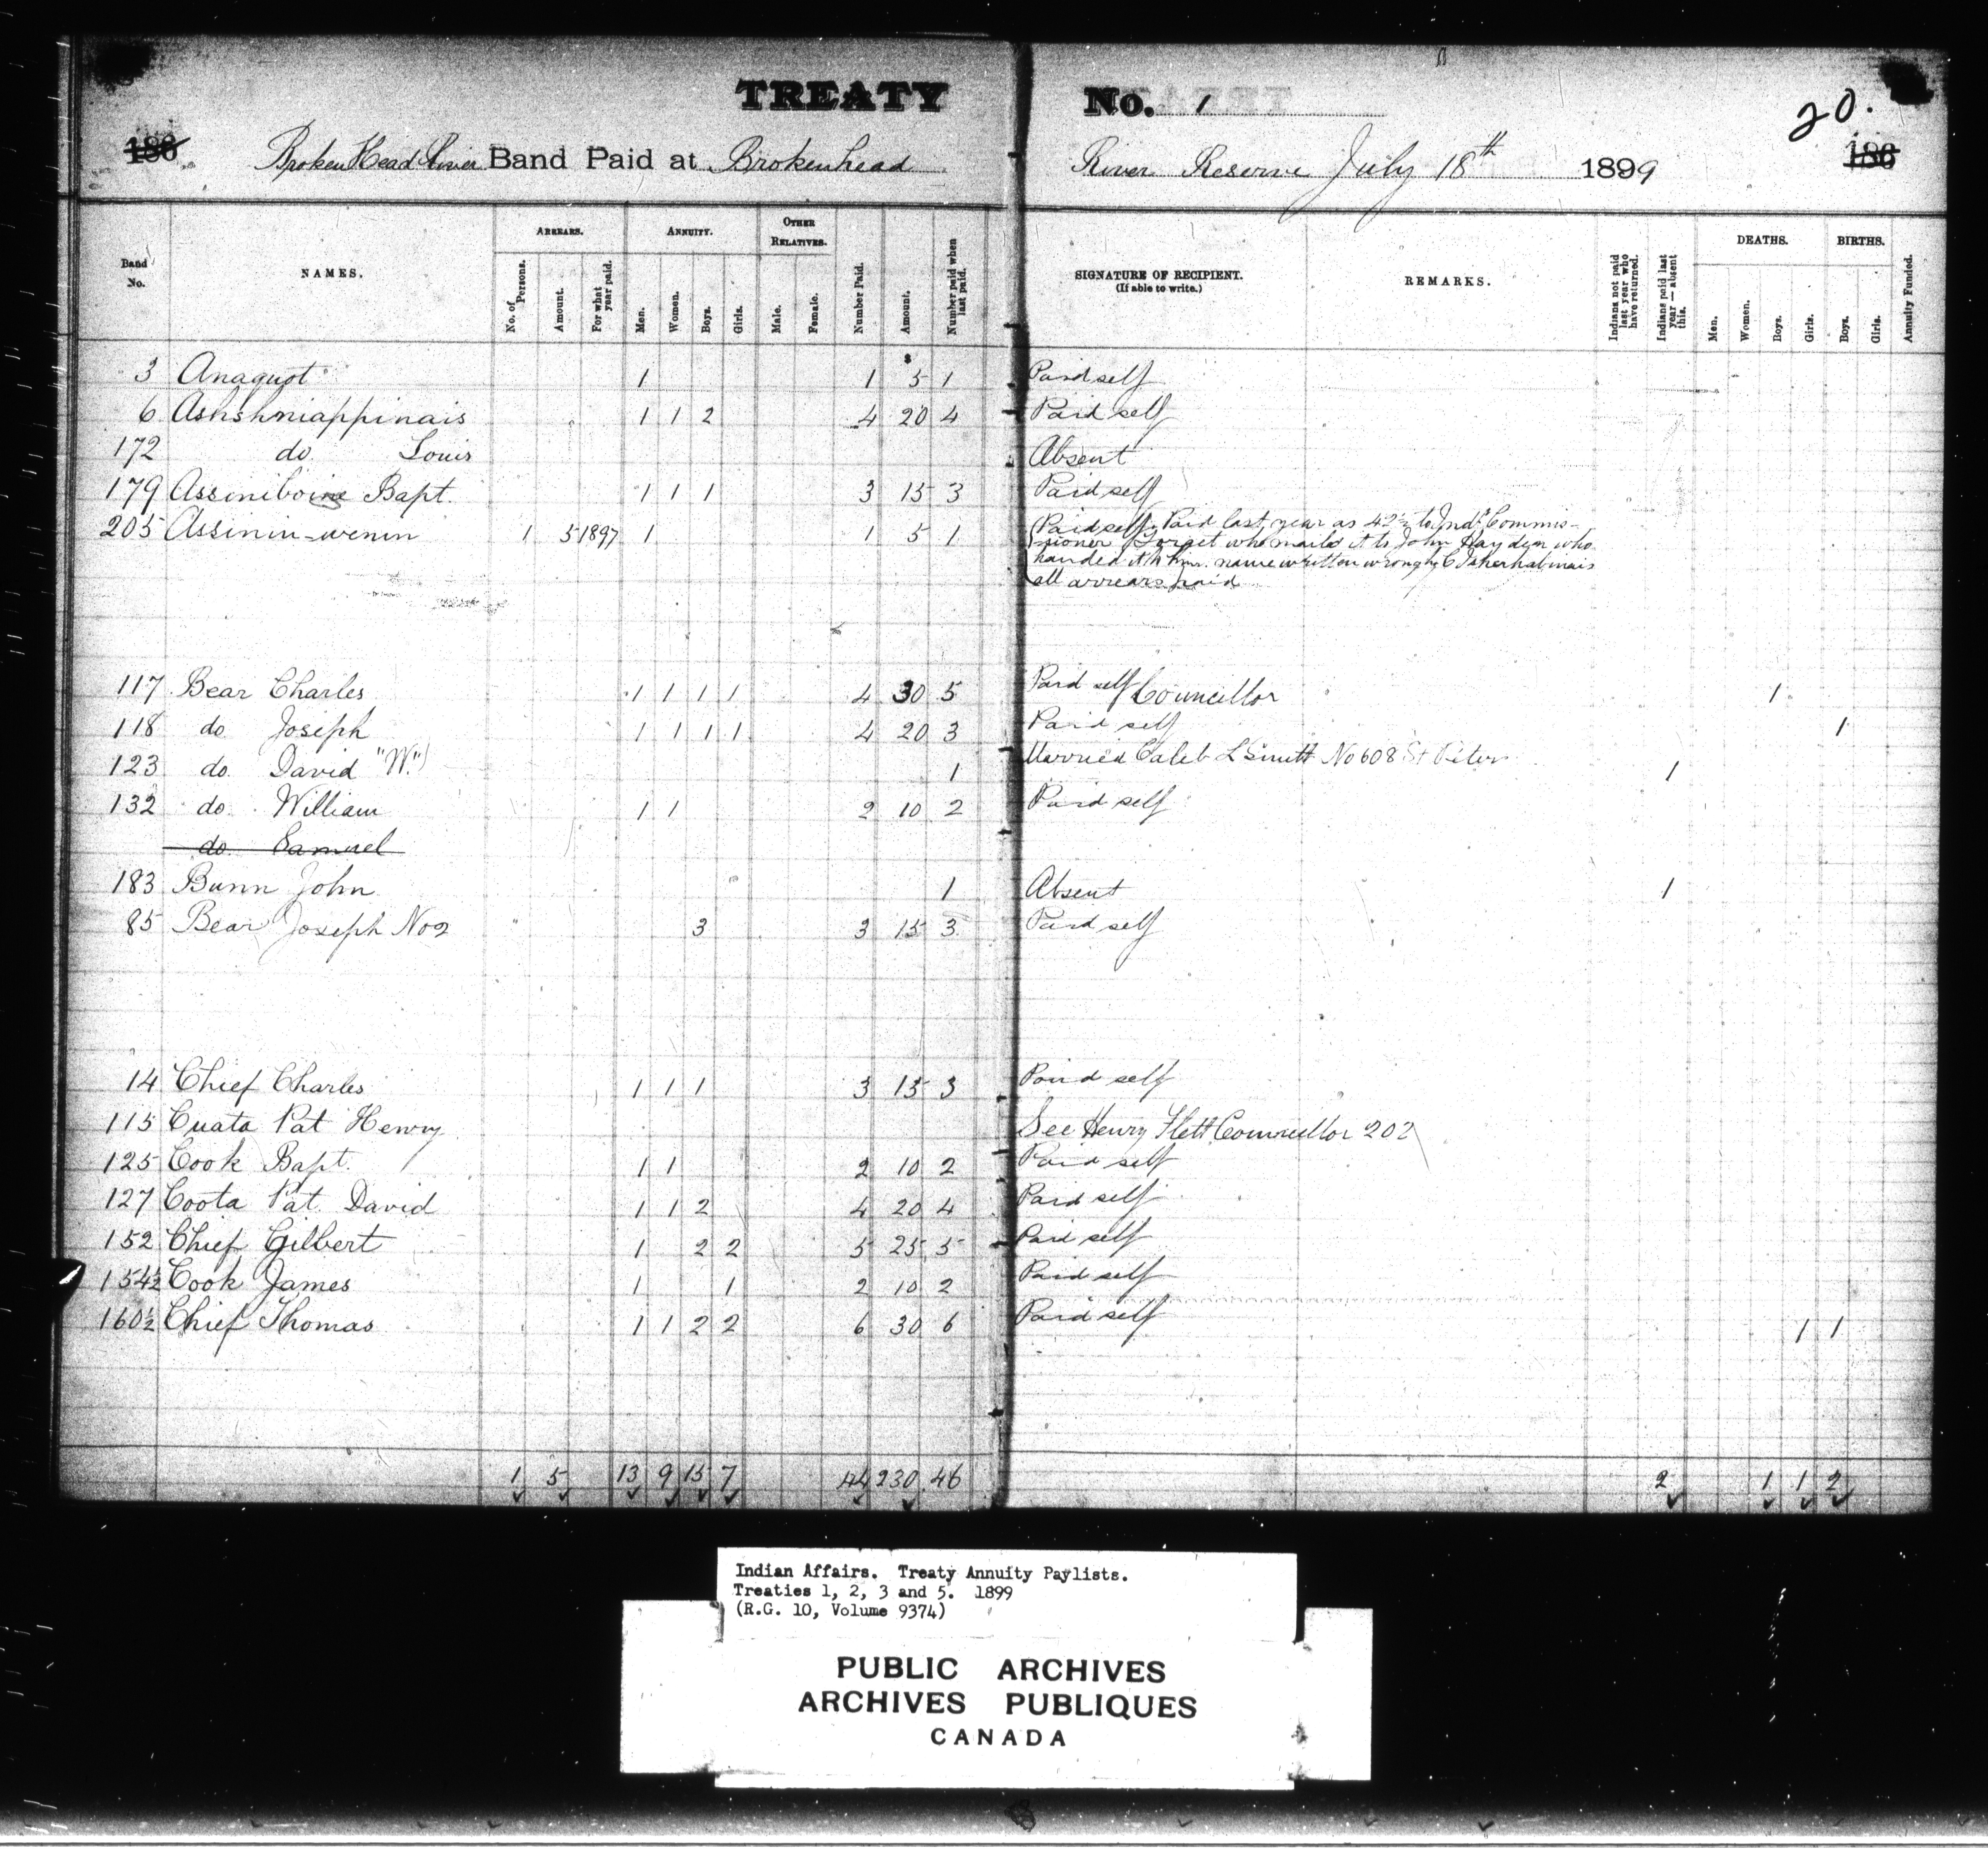 TREATY No. 1
20.
186 Broken Head River Band Paid at Brokenhead River Reserve July 18th 1899 186
Band No. NAMES. ARREARS. No. of Persons. Amount. For what year paid. ANNUITY. Men. Women. Boys. Girls. OTHER RELATIVES. Male. Female. Number Paid. Amount. Number paid when last paid. SIGNATURE OF RECIPIENT. (If able to write.) REMARKS. Indians not paid last year who have returned. Indians paid last year — absent this. DEATHS. Men. Women. Boys. Girls. BIRTHS. Boys. Girls. Annuity Funded.
3 Anaquot 1 1 $ 5 1 Paid self
6 Ashshniappinais 1 1 2 4 20 4 Paid self
172 do Louis Absent
179 Assiniboine Bapt. 1 1 1 3 15 3 Paid self
205 Assinin-wenin 1 5 1897 1 1 5 1 Paid self Paid last year as 42½ to Ind. Commis-
sioner Forget who mailed it to John Hayden who
handed it to him. name written wrongly
all arrears paid
117 Bear Charles 1 1 1 1 4 30 5 Paid self Councillor 1
118 do Joseph 1 1 1 1 4 20 3 Paid self 1
123 do. David "W." 1 Married Caleb L Smith No 608 St Peter 1
132 do. William 1 1 2 10 2 Paid self
do. Samuel
183 Bunn John 1 Absent 1
85 Bear Joseph No 2 3 3 15 3 Paid self
14 Chief Charles 1 1 1 3 15 3 Paid self
115 Cuata Pat Henry See Henry Flett Councillor 202
125 Cook Bapt. 1 1 2 10 2 Paid self
127 Coota Pat. David 1 1 2 4 20 4 Paid self
152 Chief Gilbert 1 2 2 5 25 5 Paid self
154½ Cook James 1 1 2 10 2 Paid self
160½ Chief Thomas 1 1 2 2 6 30 6 Paid self 1 1
1 5 13 9 15 7 44 230 46 2 1 1 2
Indian Affairs. Treaty Annuity Paylists.
Treaties 1, 2, 3 and 5. 1899
(R.G. 10, Volume 9374)
PUBLIC ARCHIVES
ARCHIVES PUBLIQUES
CANADA